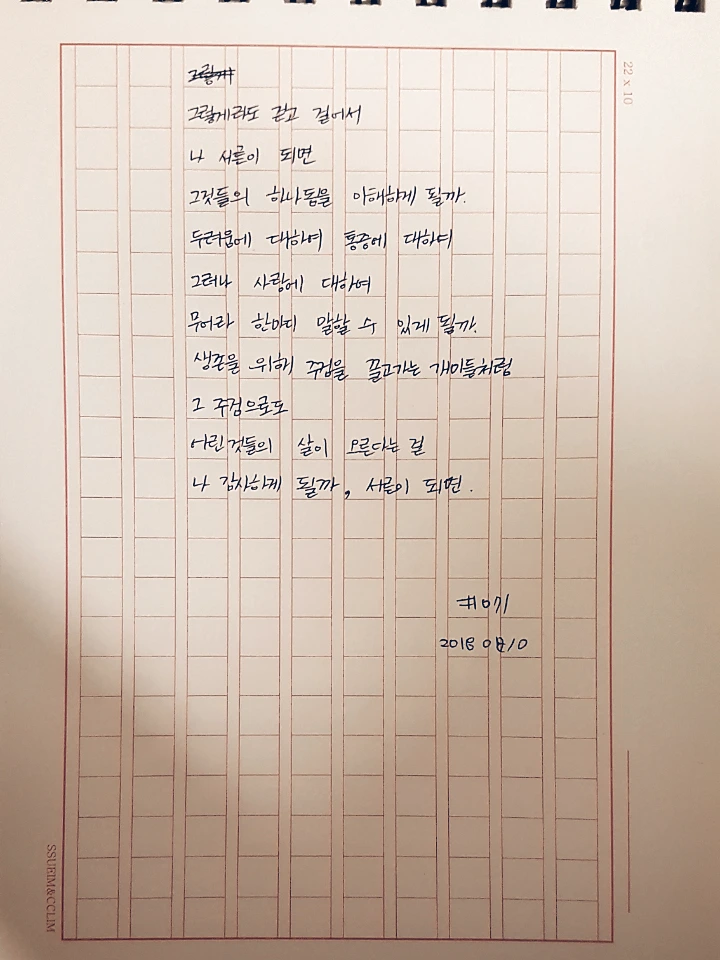 그렇게라도 걷고 걸어서
나 서른이 되면
그것들의 하나됨을 이해하게 될까.
두려움에 대하여 통증에 대하여
그러나 사랑에 대하여
무어라 한마디 말할 수 있게 될까.
생존을 위해 주검을 끌고가는 개미들처럼
그 주검으로도
어린것들의 살이 오른다는 걸
나 감사하게 될까, 서른이 되면.
#071
2018 08 10
22 x 10
SSUEIM&CCLIM